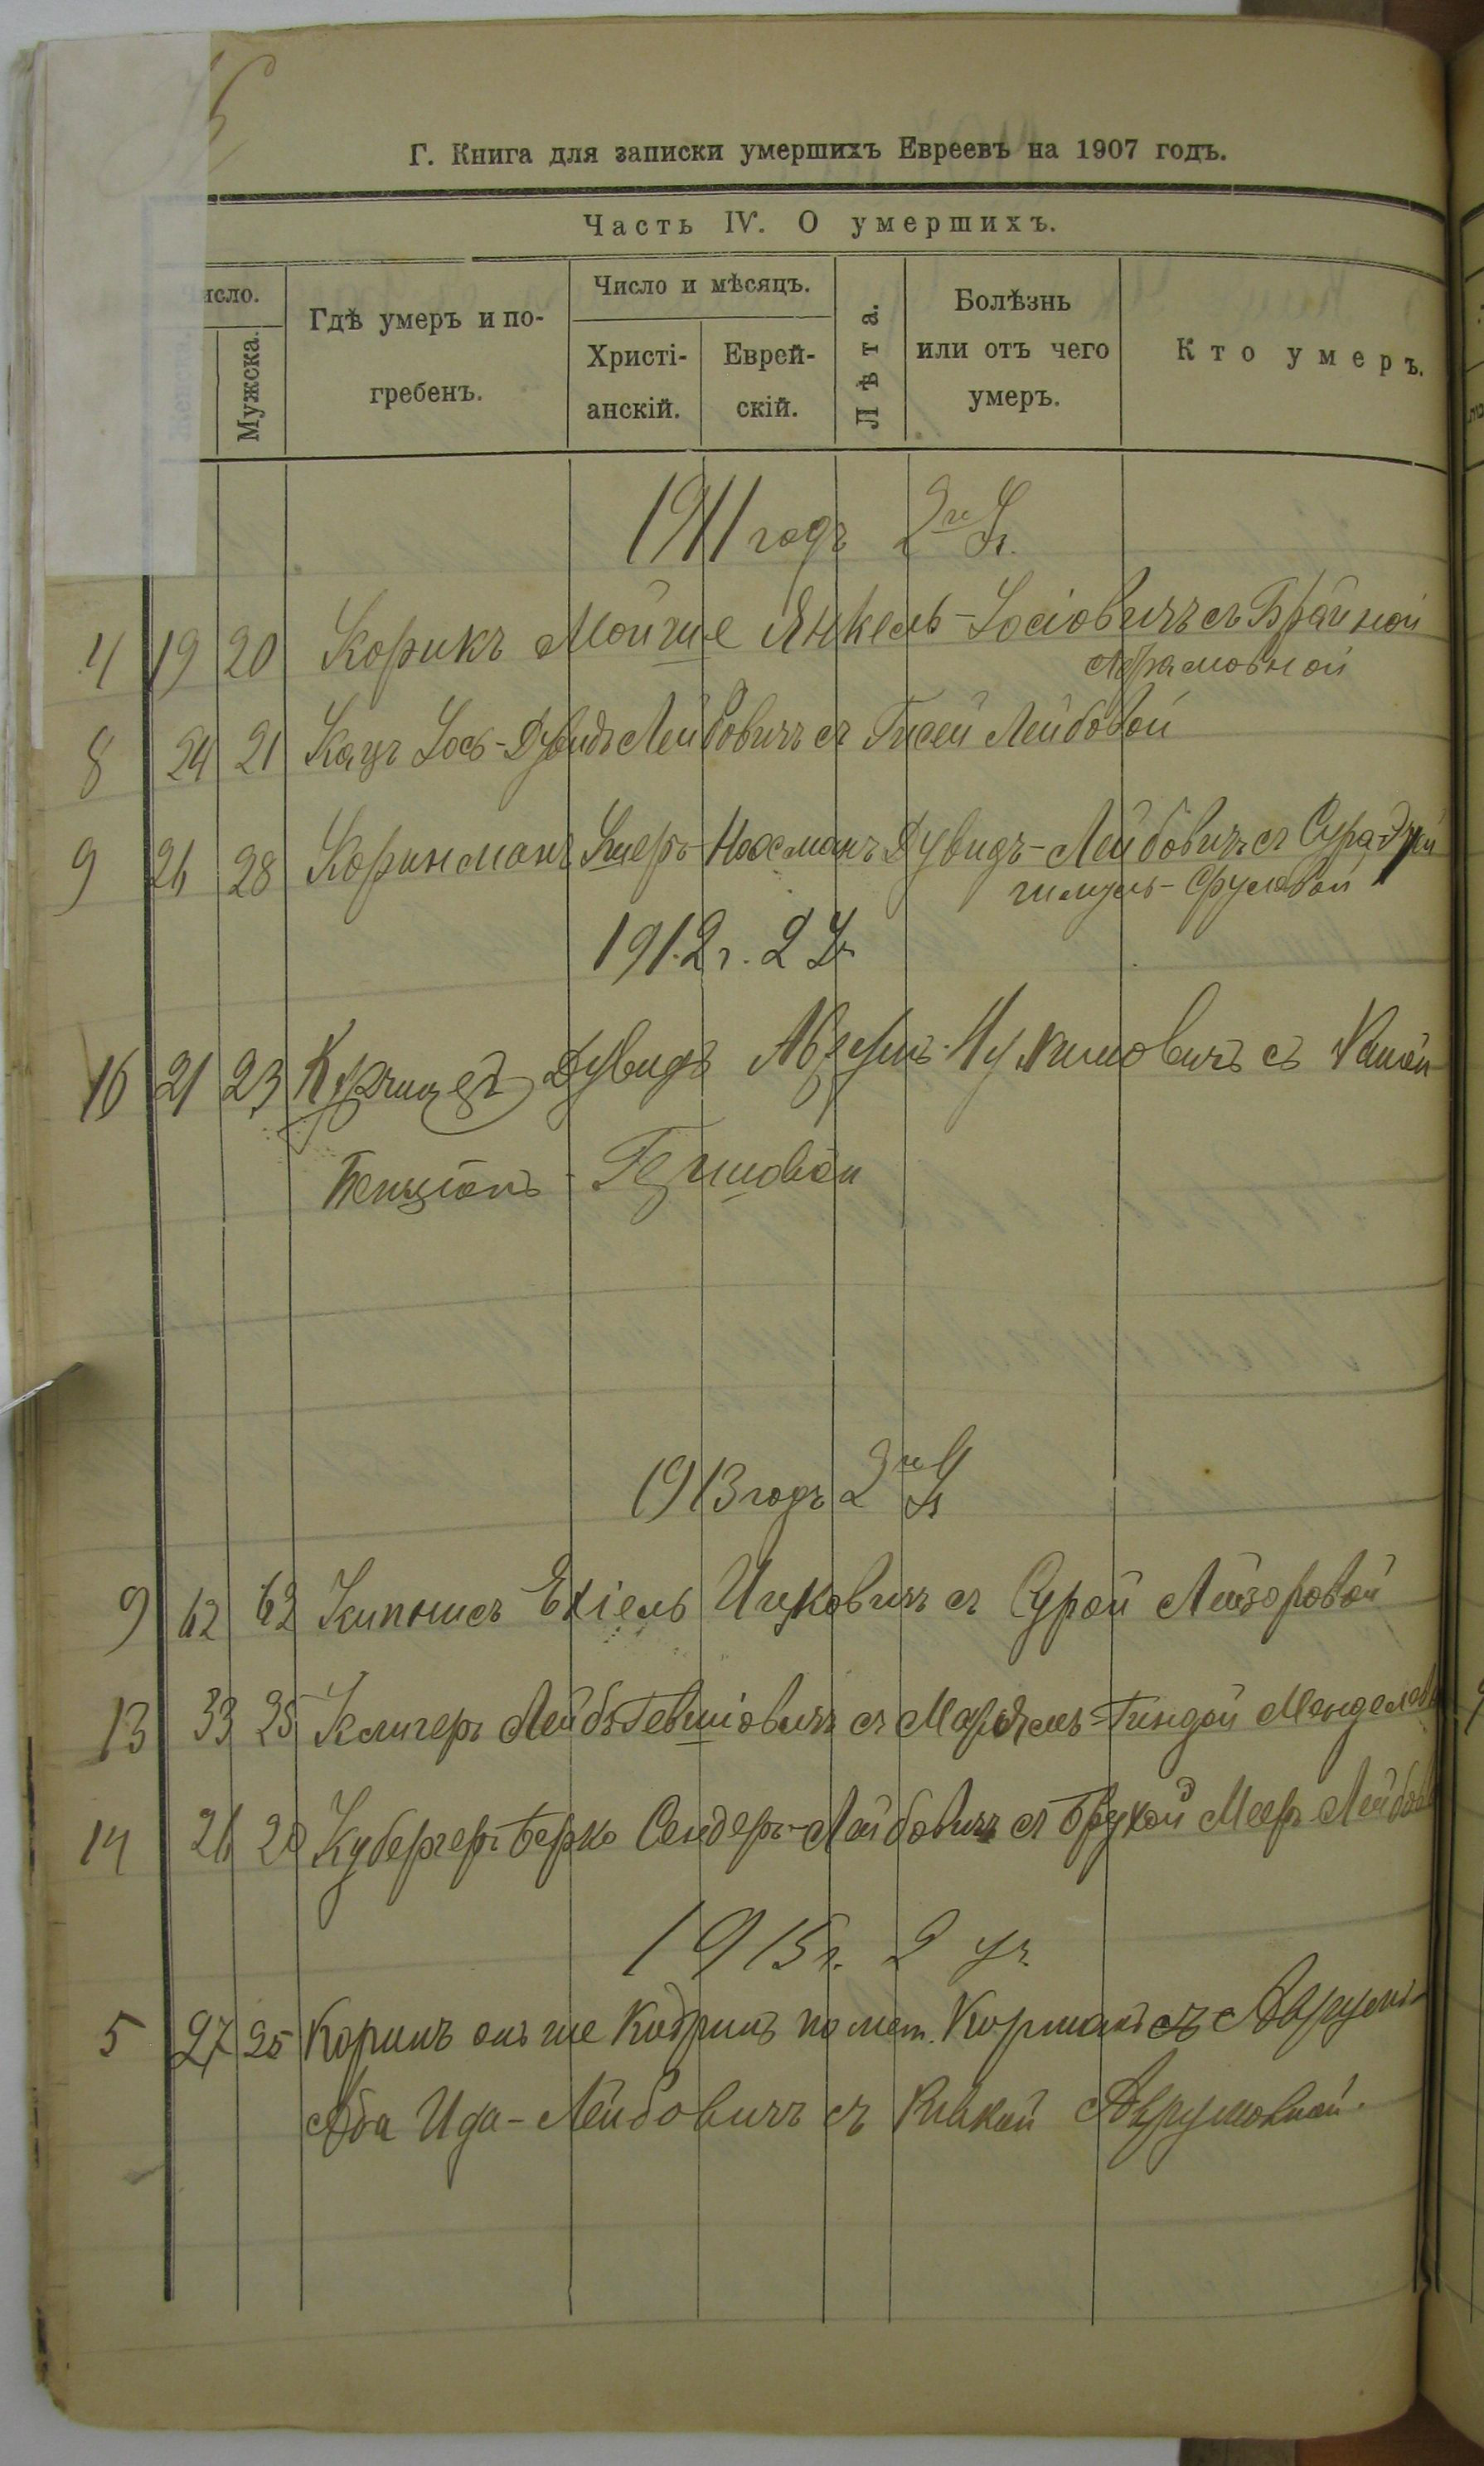 Г. Книга для записки умершихъ Евреевъ на 1907 годъ.
Часть IV. О умершихъ.
исло.
Мужска.
Гдѣ умеръ и по-
гребенъ.
Число и мѣсяцъ.
Христі-
анскій.
Еврей-
скій.
Лѣта.
Болѣзнь
или отъ чего
умеръ.
Кто умеръ.
1911 годъ 2й
4 19 20 Корикъ Мойше Янкель-Іосіовичъ съ Брайной
Абрамовной
8 24 21 Кацъ Іось-Дувидъ Лейбовичъ съ Гисей Лейбовой
9 26 28 Коринманъ Нахманъ Дувидъ-Лейбовичъ съ Сура
Сруловой
1912 г. 2
16 21 23 Дувидъ Аврумъ съ
Бенціонъ
1913 годъ 2й
9 62 62 Кипнисъ Ехіель Ицковичъ съ Сурой Лейзоровой
13 33 25 Клигеръ Лейбъ Гевшіовичъ съ Марьямъ-Гиндой
14 26 20 Кубергеръ Берко Сендеръ-Лейбовичъ съ Брухой Мееръ
1915 г. 2 уч.
5 27 25 Коринъ онъ же по мет. Корманъ съ Аврумъ-
Аба Ида-Лейбовичъ съ Ривкой Аврумовной.